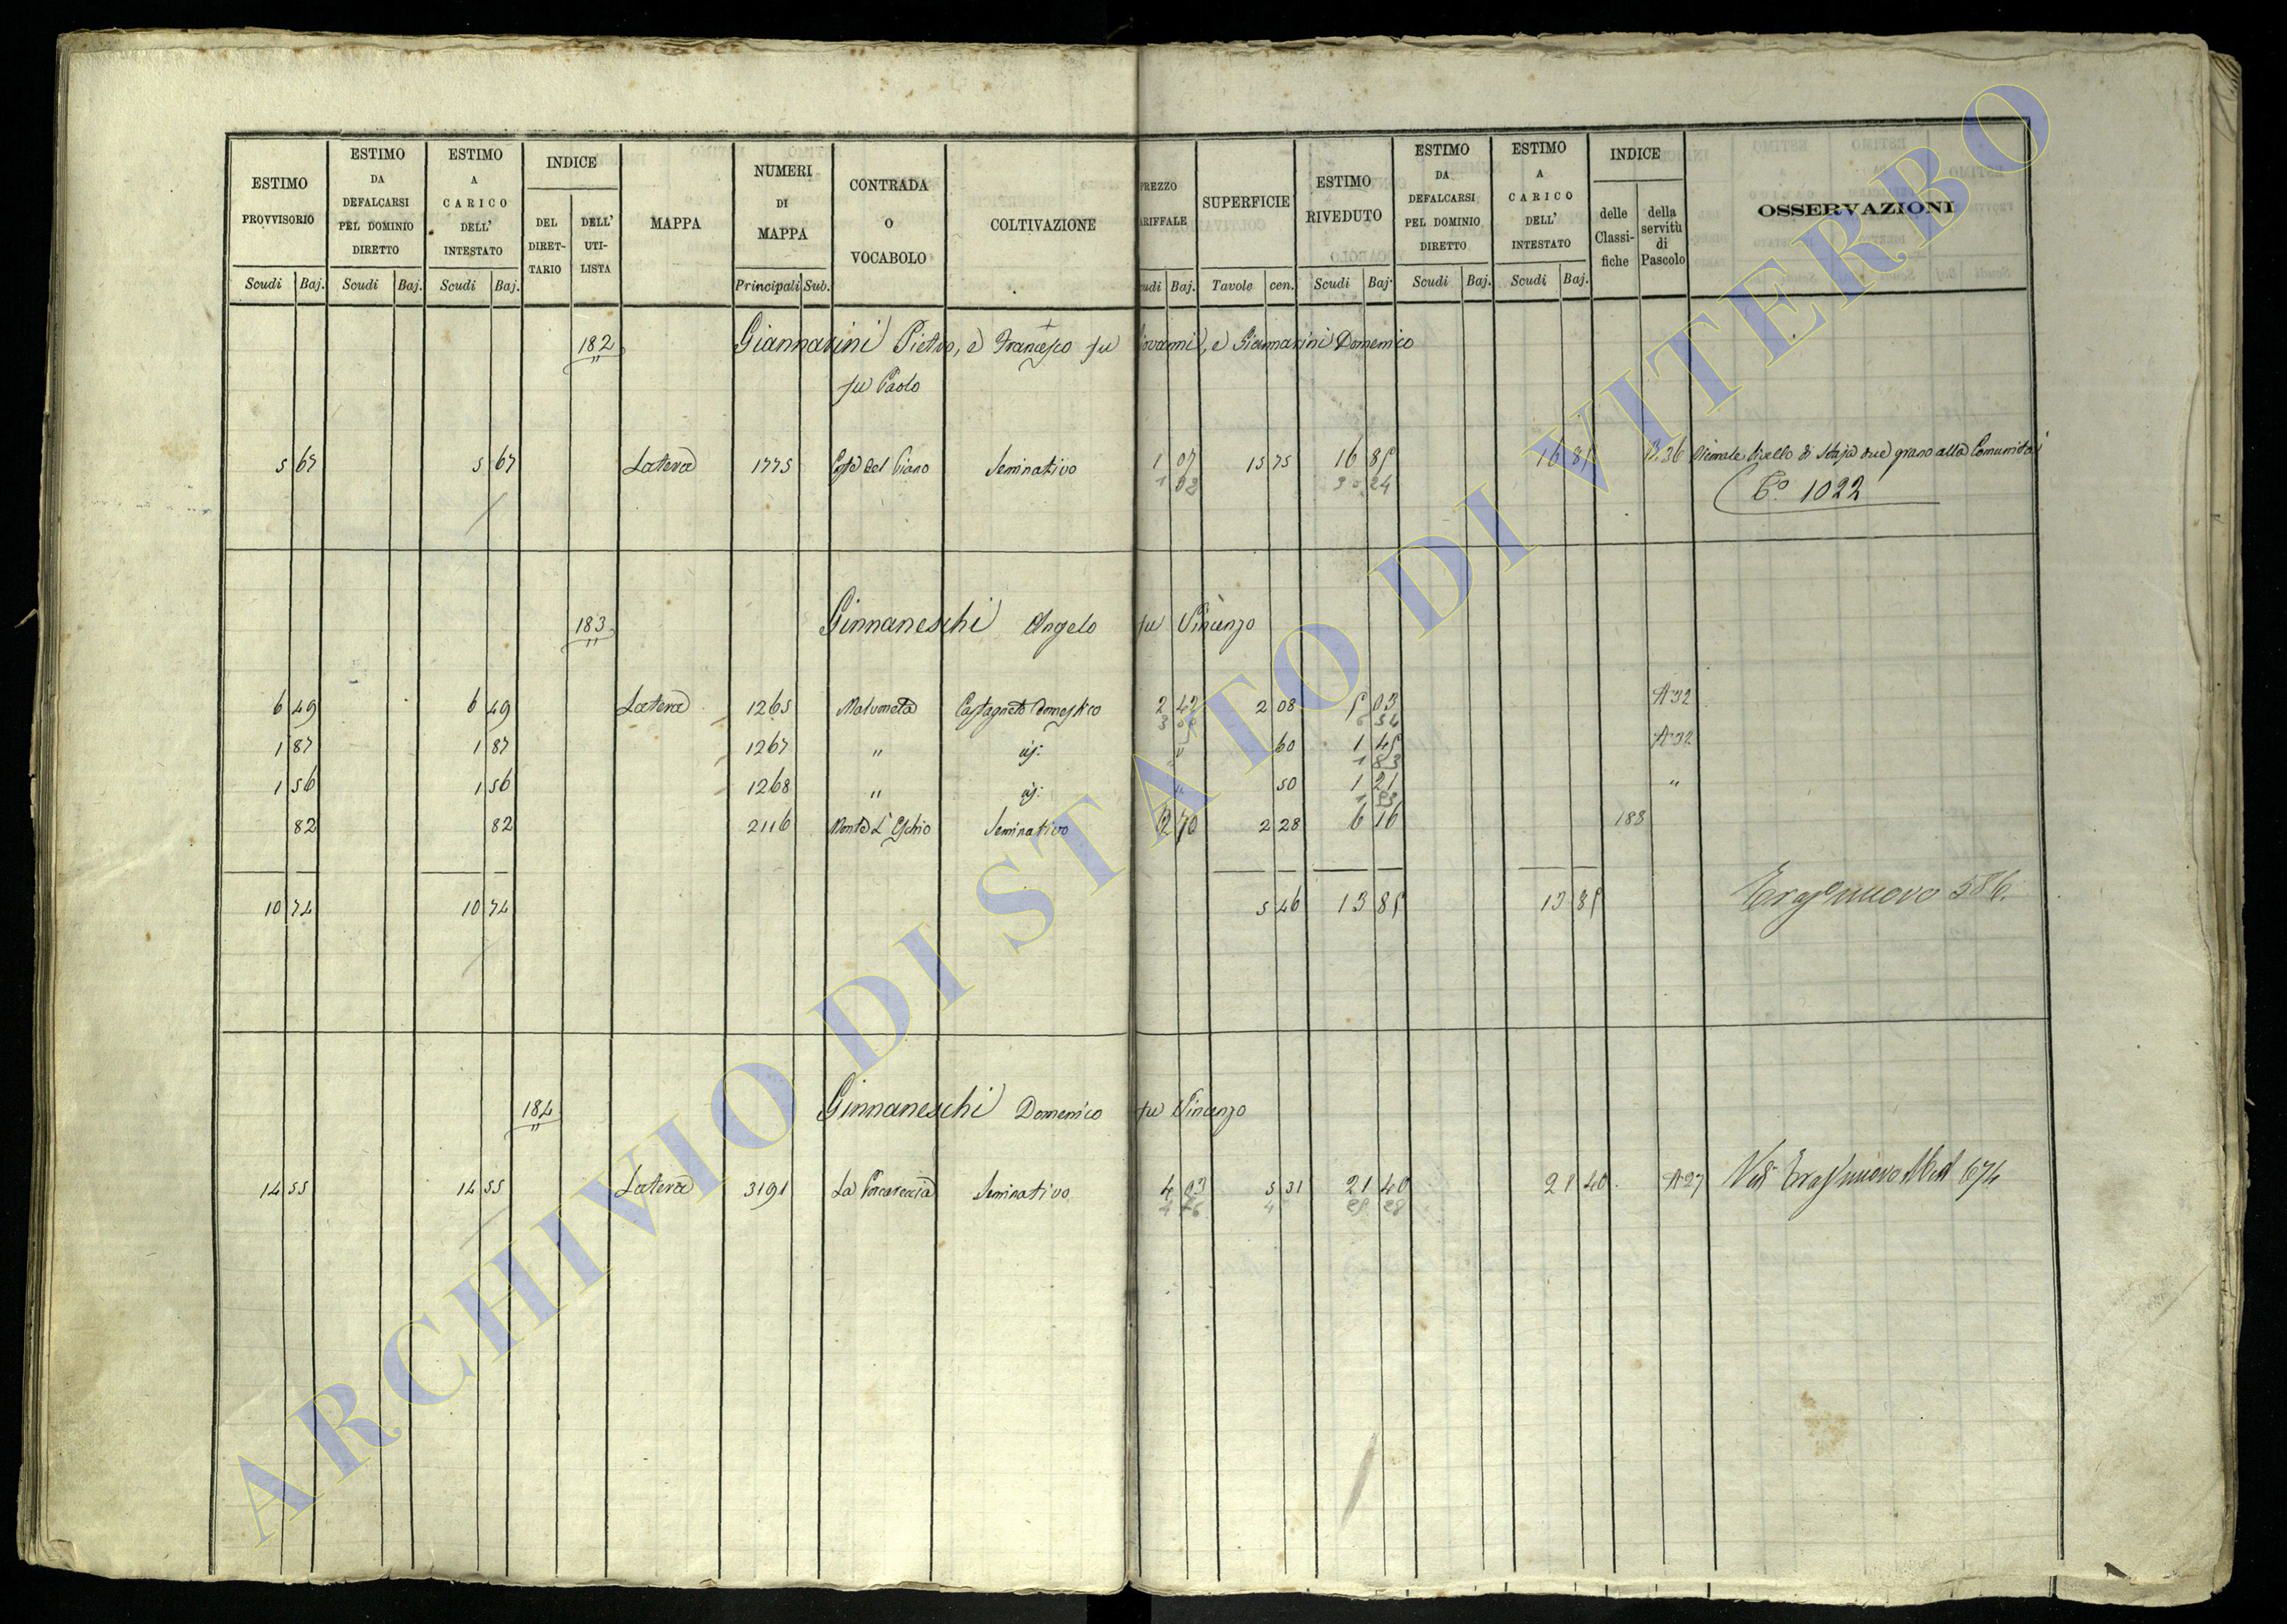 ESTIMO PROVVISORIO
Scudi Baj.
ESTIMO DA DEFALCARSI PEL DOMINIO DIRETTO
Scudi Baj.
ESTIMO A CARICO DELL' INTESTATO
Scudi Baj.
INDICE
DEL DIRET- TARIO
DELL' UTI- LISTA
MAPPA
NUMERI DI MAPPA
Principali Sub.
CONTRADA O VOCABOLO
COLTIVAZIONE
PREZZO ARIFFALE
udi Baj.
SUPERFICIE
Tavole cen.
ESTIMO RIVEDUTO
Scudi Baj.
ESTIMO DA DEFALCARSI PEL DOMINIO DIRETTO
Scudi Baj.
ESTIMO A CARICO DELL' INTESTATO
Scudi Baj.
INDICE
delle Classi- fiche
della servitù di Pascolo
OSSERVAZIONI
182 Giannarini Pietro, e Francesco fu Giovanni, e Giannarini Domenico
fu Paolo
5 67 5 67 Latera 1775 del Piano Seminativo 1 07 15 75 16 85 16 85 36 livello di Staja due grano alla Comunità
1 92 30 24 1022
183 Ginnaneschi Angelo fu Vincenzo
6 49 6 49 Latera 1265 Castagneto Domestico 2 42 2 08 5 03 A 32
6 54
1 87 1 87 1267 " id. " 60 1 45 A 32
1 83
1 56 1 56 1268 " id. " 50 1 21 "
1 53
82 82 2116 Monte L'Eschio Seminativo 2 70 2 28 6 16 188
10 74 10 74 5 46 13 85 13 85 nuovo 586.
184 Ginnaneschi Domenico fu Vincenzo
14 55 14 55 Latera 3191 La Porcareccia Seminativo 4 03 5 31 21 40 21 40 A 27 nuovo 674
ARCHIVIO DI STATO DI VITERBO